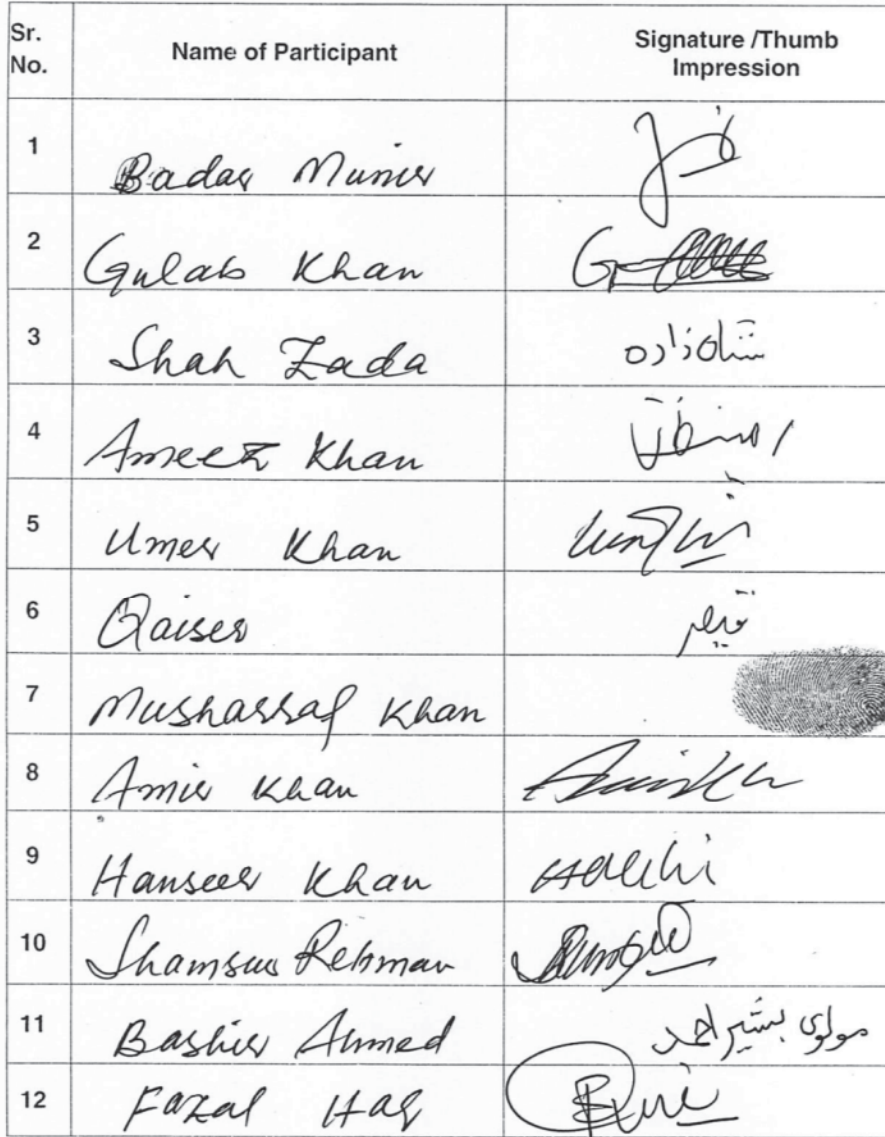 Sr. No. Name of Participant Signature /Thumb Impression
1 Badar Munir
2 Gulab Khan
3 Shah Zada شاہ زادہ
4 Ameez Khan
5 Umer Khan
6 Qaiser قیصر
7 Musharraf Khan
8 Amir Khan
9 Hanseer Khan
10 Shamsur Rehman
11 Bashir Ahmed مولوی بشیر احمد
12 Fazal Haq